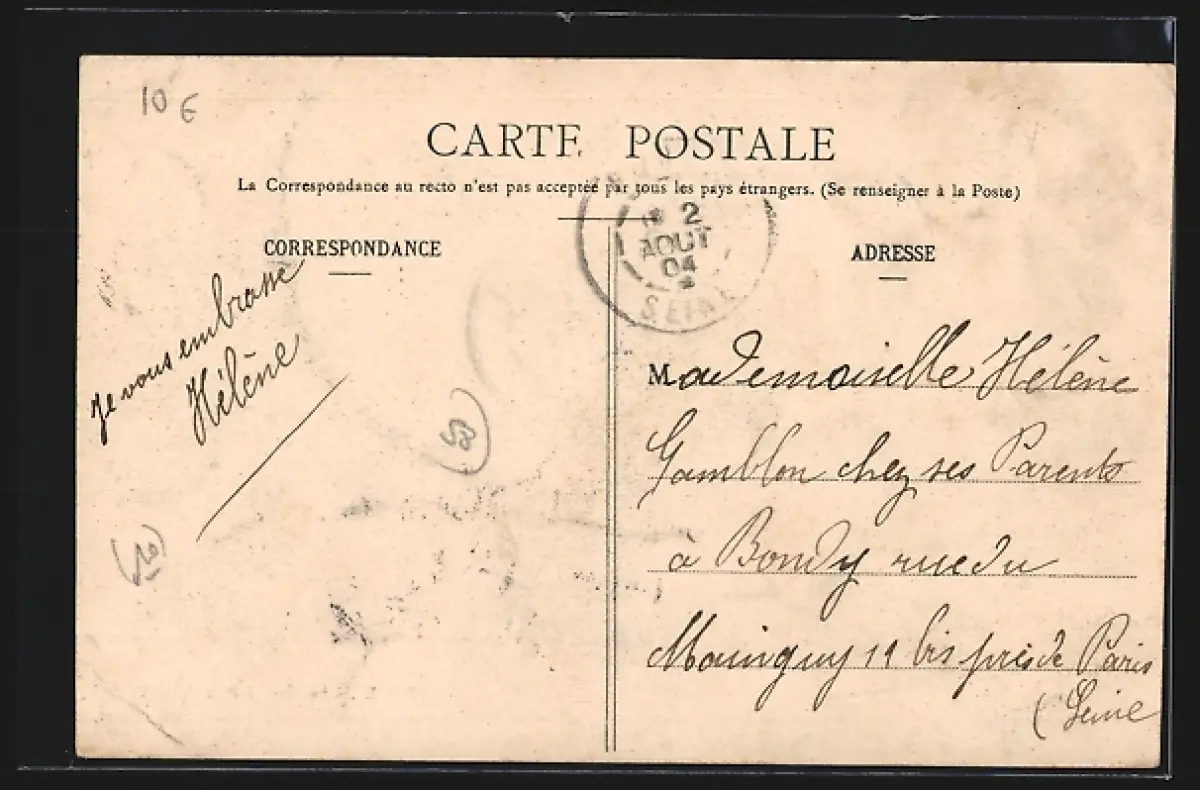 10 €
CARTE POSTALE
La Correspondance au recto n'est pas acceptée par tous les pays étrangers. (Se renseigner à la Poste)
2
AOUT
04
SEINE
CORRESPONDANCE
Je vous embrasse
Hélène
ADRESSE
Mademoiselle Hélène
Gamblon chez ses Parents
à Bondy rue du
Mainguy 11 bis près de Paris
(Seine